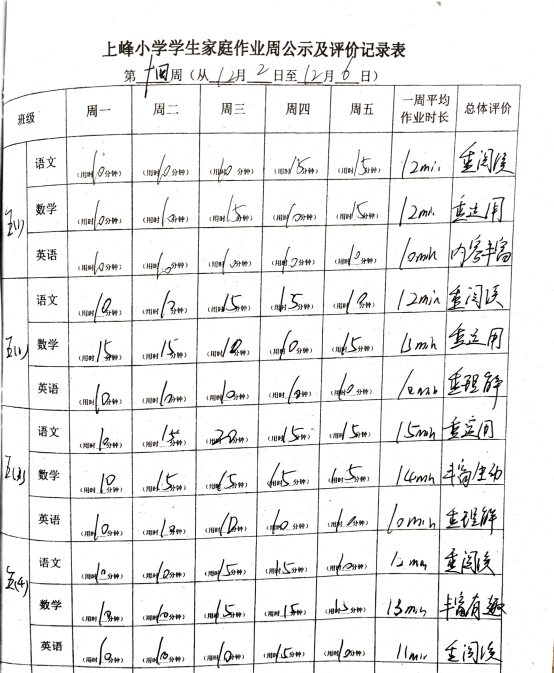 上峰小学学生家庭作业周公示及评价记录表
第十四周（从12月2日至12月6日）
班级 周一 周二 周三 周四 周五 一周平均作业时长 总体评价
五(1) 语文 （用时10分钟） （用时10分钟） （用时10分钟） （用时15分钟） （用时15分钟） 12min 重阅读
数学 （用时10分钟） （用时10分钟） （用时15分钟） （用时10分钟） （用时15分钟） 12min 重运用
英语 （用时10分钟） （用时10分钟） （用时10分钟） （用时10分钟） （用时10分钟） 10min 内容丰富
语文 （用时10分钟） （用时10分钟） （用时15分钟） （用时15分钟） （用时10分钟） 12min 重阅读
数学 （用时15分钟） （用时15分钟） （用时10分钟） （用时10分钟） （用时15分钟） 13min 重运用
英语 （用时10分钟） （用时10分钟） （用时10分钟） （用时10分钟） （用时10分钟） 10min 重理解
五(3) 语文 （用时10分钟） （用时15分钟） （用时20分钟） （用时15分钟） （用时15分钟） 15min 重运用
数学 （用时10分钟） （用时15分钟） （用时15分钟） （用时15分钟） （用时15分钟） 14min 丰富生动
英语 （用时10分钟） （用时10分钟） （用时10分钟） （用时10分钟） （用时10分钟） 10min 重理解
五(4) 语文 （用时10分钟） （用时10分钟） （用时15分钟） （用时15分钟） （用时10分钟） 12min 重阅读
数学 （用时10分钟） （用时10分钟） （用时15分钟） （用时15分钟） （用时15分钟） 13min 丰富有趣
英语 （用时10分钟） （用时10分钟） （用时10分钟） （用时15分钟） （用时10分钟） 11min 重阅读